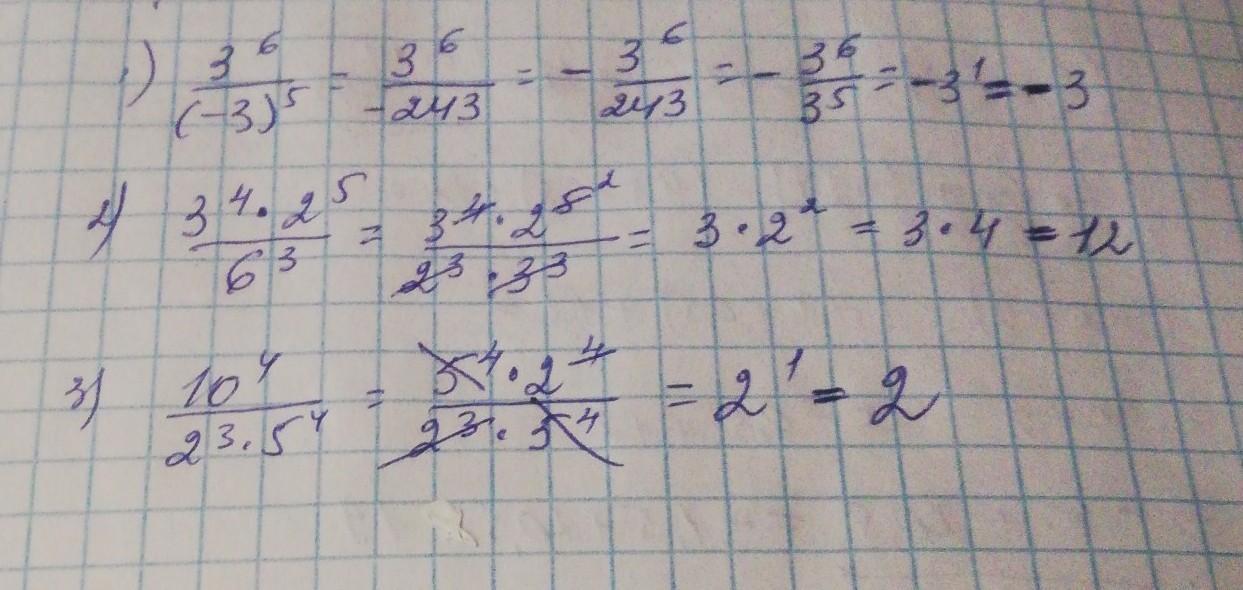 1) 3^6/(-3)^5 = 3^6/-243 = - 3^6/243 = - 3^6/3^5 = -3^1 = -3
2) 3^4 · 2^5/6^3 = 3^4 · 2^5 ^2/2^3 · 3^3 = 3 · 2^2 = 3 · 4 = 12
3) 10^4/2^3 · 5^4 = 5^4 · 2^4/2^3 · 5^4 = 2^1 = 2